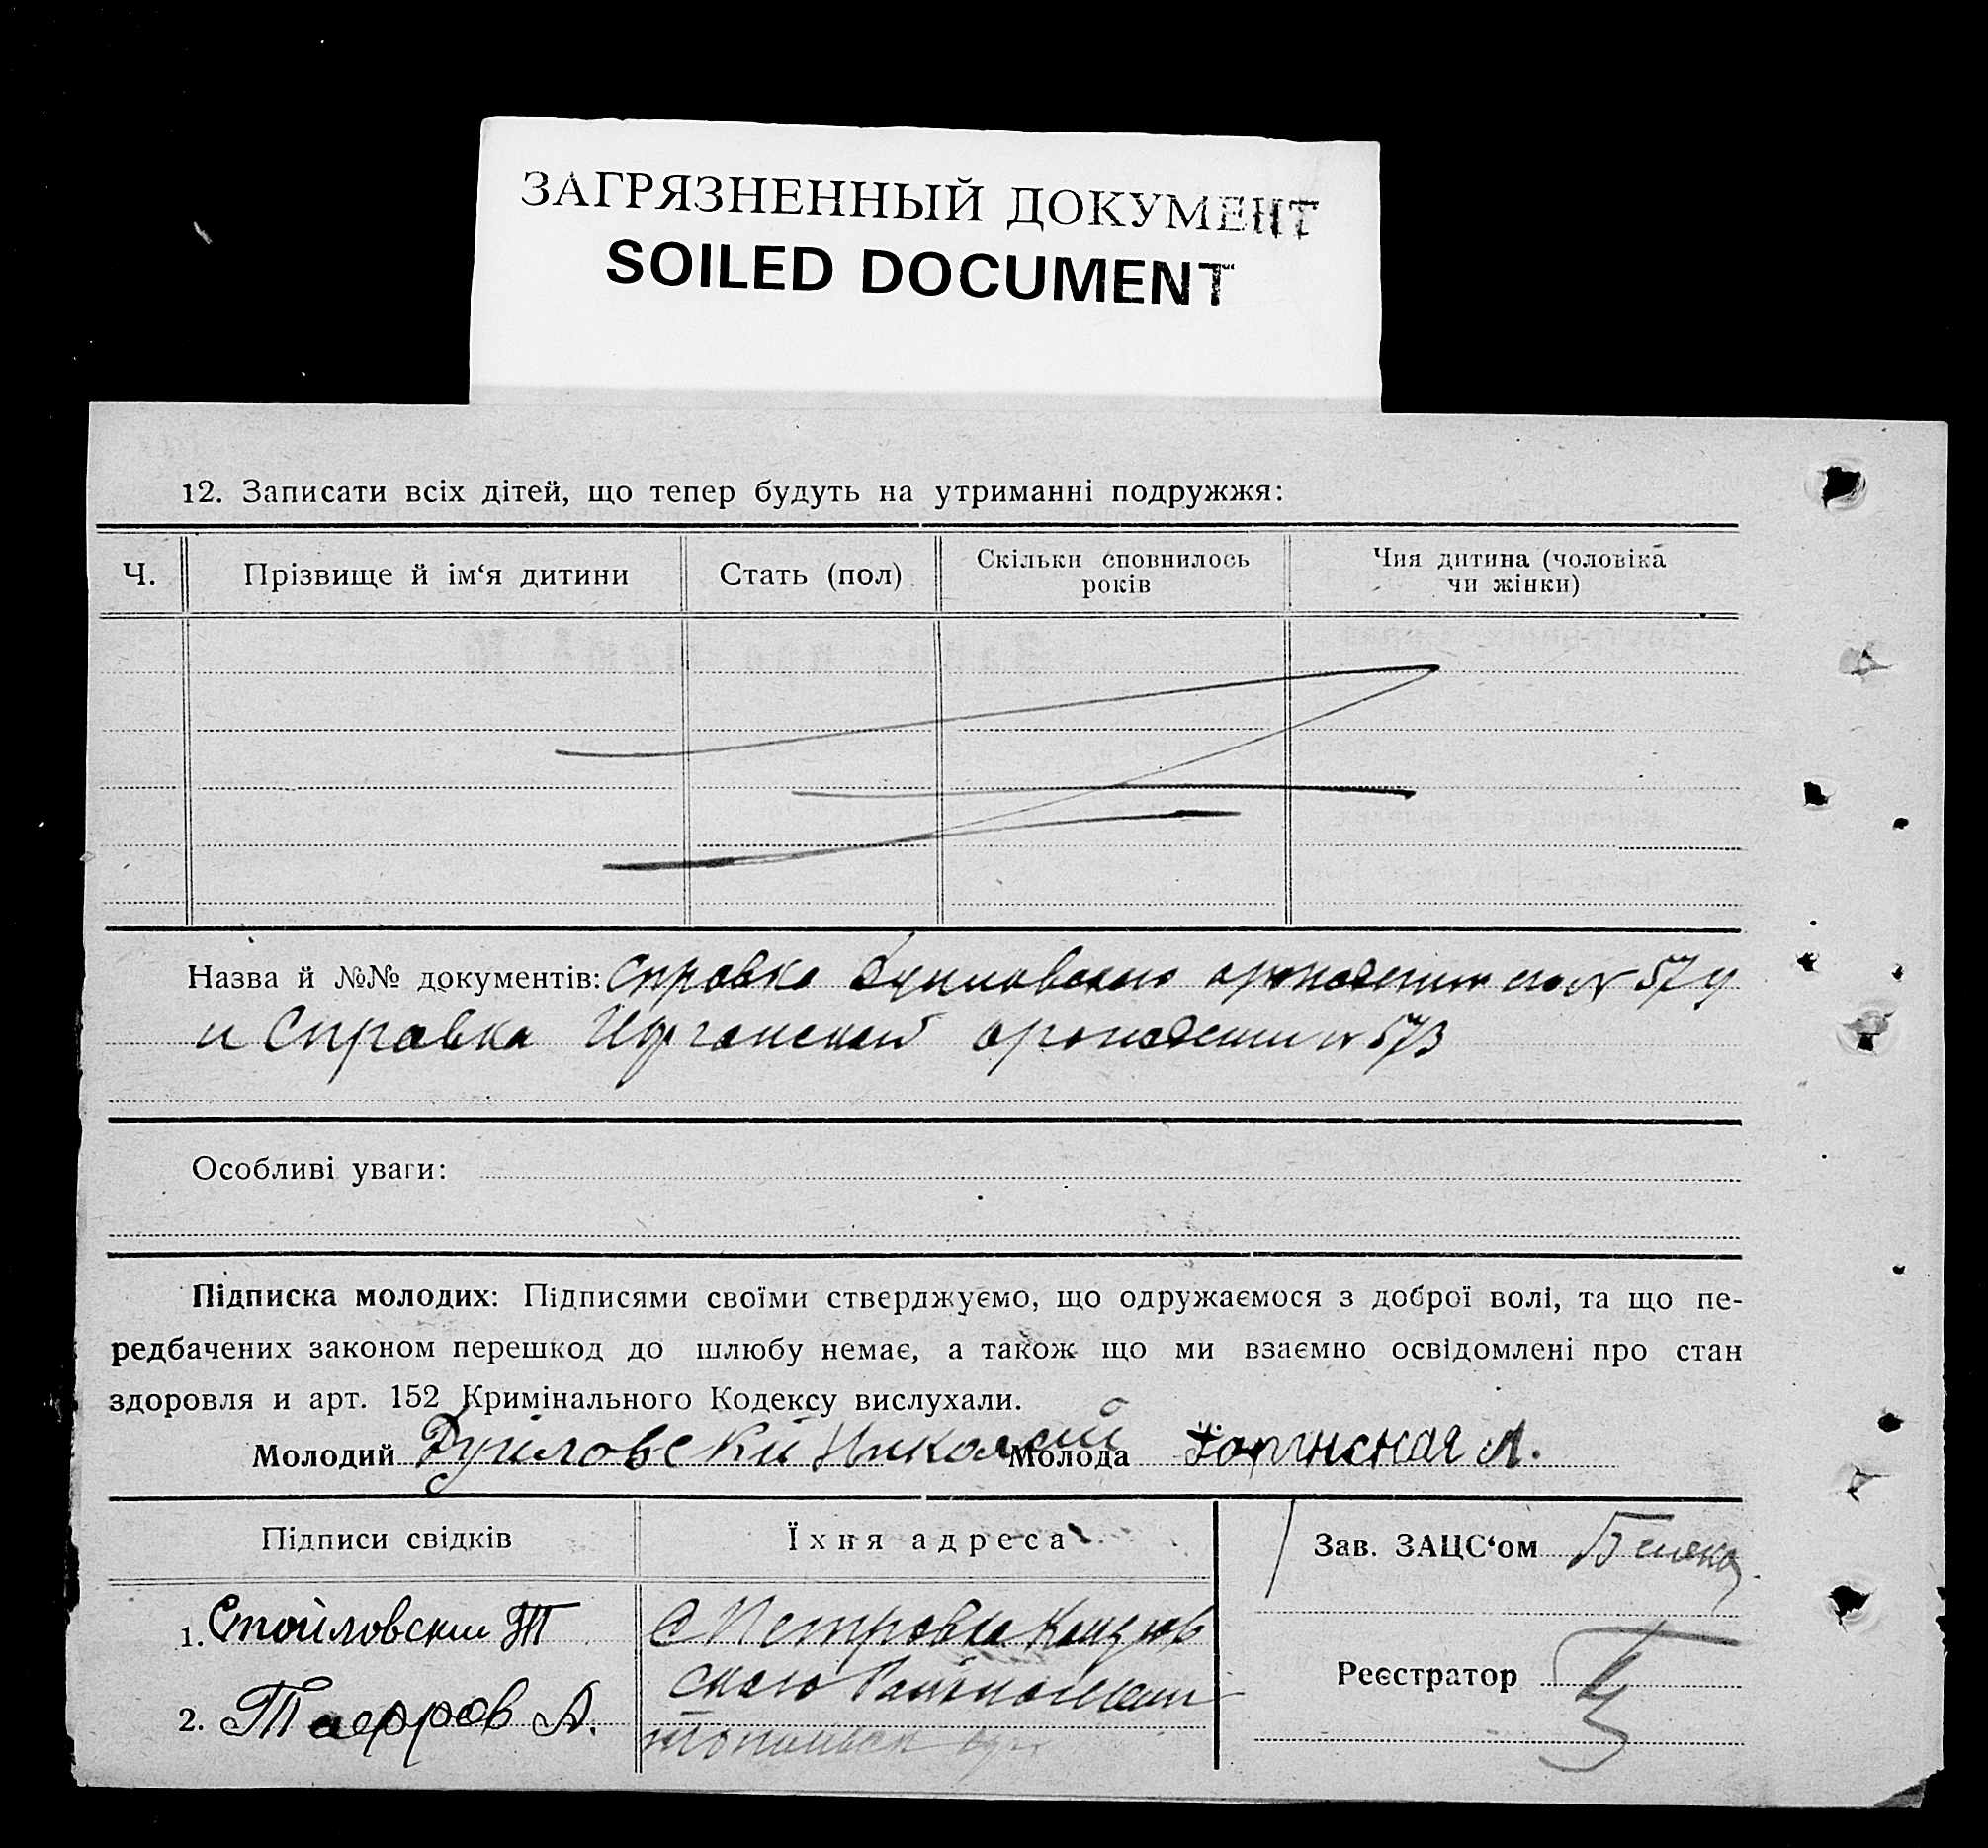 ЗАГРЯЗНЕННЫЙ ДОКУМЕНТ
SOILED DOCUMENT
12. Записати всіх дітей, що тепер будуть на утриманні подружжя:
Ч.
Прізвище й ім‘я дитини
Стать (пол)
Скільки сповнилось
років
Чия дитина (чоловіка
чи жінки)
Назва й №№ документів: Справка
и Справка
Особливі уваги:
Підписка молодих: Підписями своїми стверджуємо, що одружаємося з доброї волі, та що пе-
редбачених законом перешкод до шлюбу немає, а також що ми взаємно освідомлені про стан
здоровля и арт. 152 Кримінального Кодексу вислухали.
Молодий Николай Молода А.
Підписи свідків
Їхня адреса
Зав. ЗАЦС‘ом
1. Стойловский
с Петровка
Реєстратор
2. А.
ского